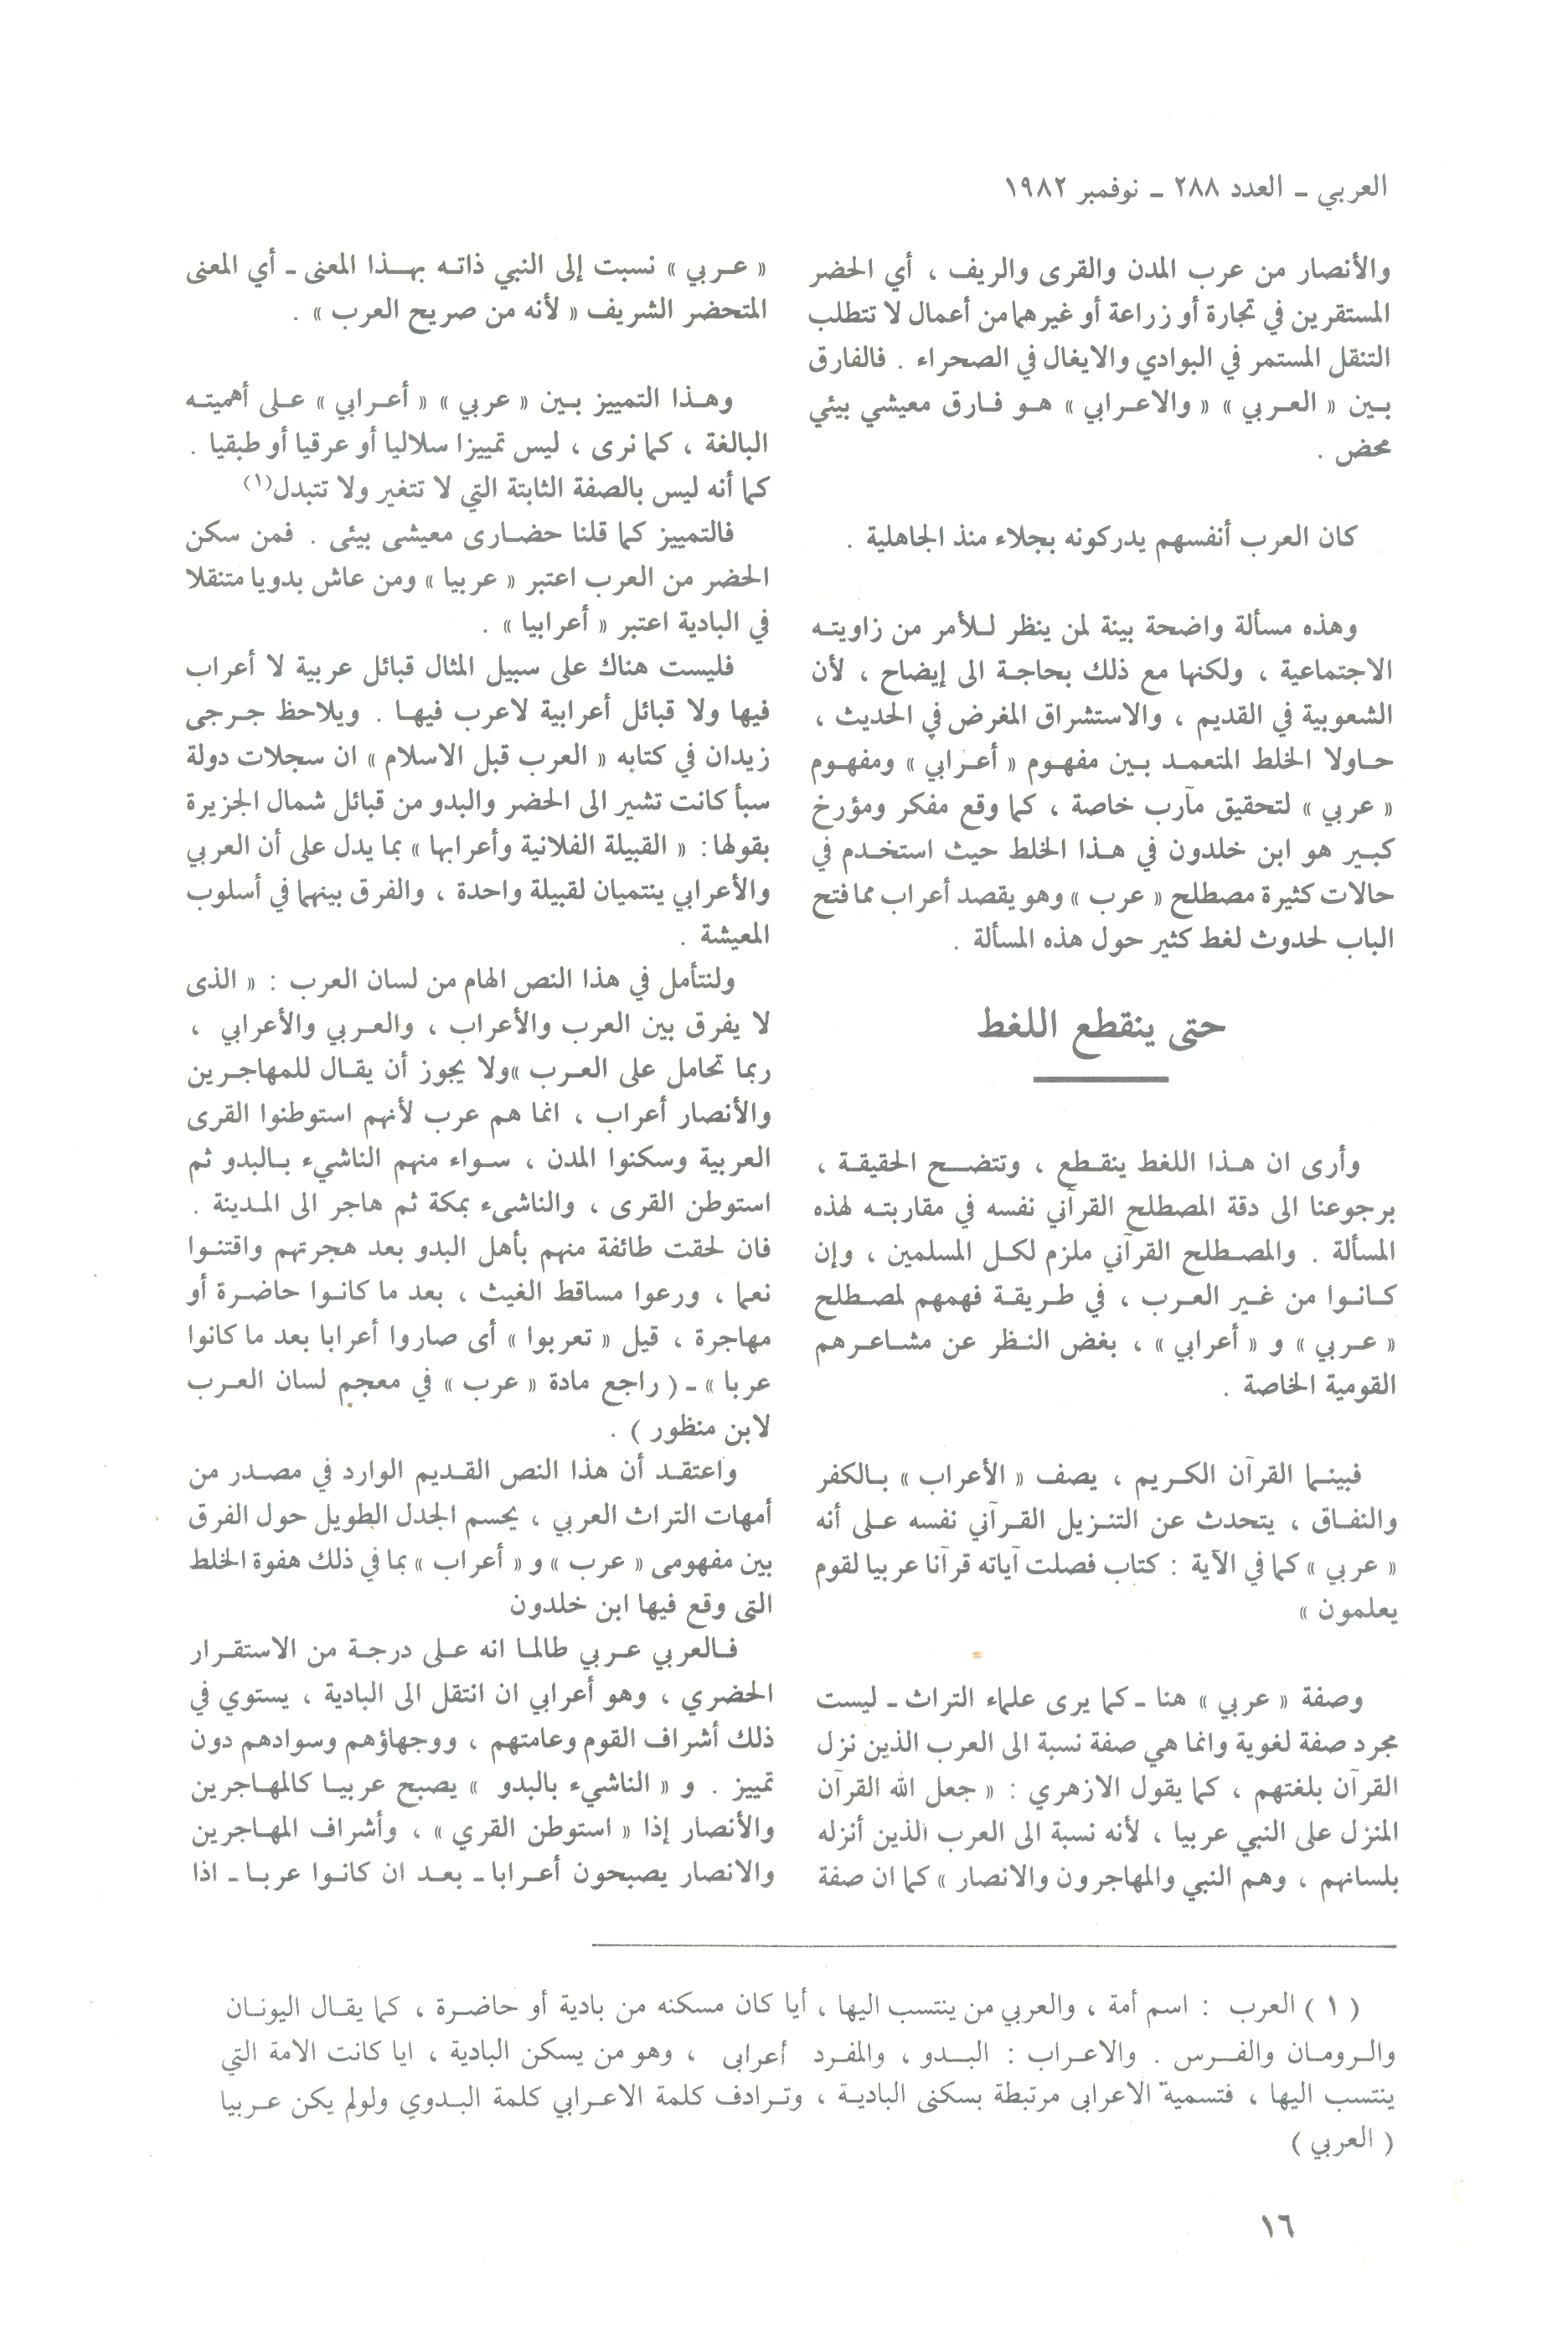 العربي ـ العدد ٢٨٨ ـ نوفمبر ١٩٨٢
والأنصار من عرب المدن والقرى والريف ، أي الحضر
المستقرين في تجارة أو زراعة أو غيرهما من أعمال لا تتطلب
التنقل المستمر في البوادي والايغال في الصحراء . فالفارق
بين « العربي » « والاعرابي » هو فارق معيشي بيئي
محض .
كان العرب أنفسهم يدركونه بجلاء منذ الجاهلية .
وهذه مسألة واضحة بينة لمن ينظر للأمر من زاويته
الاجتماعية ، ولكنها مع ذلك بحاجة الى إيضاح ، لأن
الشعوبية في القديم ، والاستشراق المغرض في الحديث ،
حاولا الخلط المتعمد بين مفهوم « أعرابي » ومفهوم
« عربي » لتحقيق مآرب خاصة ، كما وقع مفكر ومؤرخ
كبير هو ابن خلدون في هذا الخلط حيث استخدم في
حالات كثيرة مصطلح « عرب » وهو يقصد أعراب مما فتح
الباب لحدوث لغط كثير حول هذه المسألة .
حتى ينقطع اللغط
وأرى ان هذا اللغط ينقطع ، وتتضح الحقيقة ،
برجوعنا الى دقة المصطلح القرآني نفسه في مقاربته لهذه
المسألة . والمصطلح القرآني ملزم لكل المسلمين ، وإن
كانوا من غير العرب ، في طريقة فهمهم لمصطلح
« عربي » و « أعرابي » ، بغض النظر عن مشاعرهم
القومية الخاصة .
فبينما القرآن الكريم ، يصف « الأعراب » بالكفر
والنفاق ، يتحدث عن التنزيل القرآني نفسه على أنه
« عربي » كما في الآية : كتاب فصلت آياته قرآنا عربيا لقوم
يعلمون »
وصفة « عربي » هنا ـ كما يرى علماء التراث ـ ليست
مجرد صفة لغوية وانما هي صفة نسبة الى العرب الذين نزل
القرآن بلغتهم ، كما يقول الازهري : « جعل الله القرآن
المنزل على النبي عربيا ، لأنه نسبة الى العرب الذين أنزله
بلسانهم ، وهم النبي والمهاجرون والانصار » كما ان صفة
« عربي » نسبت إلى النبي ذاته بهذا المعنى ـ أي المعنى
المتحضر الشريف « لأنه من صريح العرب » .
وهذا التمييز بين « عربي » « أعرابي » على أهميته
البالغة ، كما نرى ، ليس تمييزا سلاليا أو عرقيا أو طبقيا .
كما أنه ليس بالصفة الثابتة التي لا تتغير ولا تتبدل(١)
فالتمييز كما قلنا حضارى معيشى بيئى . فمن سكن
الحضر من العرب اعتبر « عربيا » ومن عاش بدويا متنقلا
في البادية اعتبر « أعرابيا » .
فليست هناك على سبيل المثال قبائل عربية لا أعراب
فيها ولا قبائل أعرابية لاعرب فيها . ويلاحظ جرجى
زيدان في كتابه « العرب قبل الاسلام » ان سجلات دولة
سبأ كانت تشير الى الحضر والبدو من قبائل شمال الجزيرة
بقولها: « القبيلة الفلانية وأعرابها » بما يدل على أن العربي
والأعرابي ينتميان لقبيلة واحدة ، والفرق بينهما في أسلوب
المعيشة .
ولنتأمل في هذا النص الهام من لسان العرب : « الذى
لا يفرق بين العرب والأعراب ، والعربي والأعرابي ،
ربما تحامل على العرب »ولا يجوز أن يقال للمهاجرين
والأنصار أعراب ، انما هم عرب لأنهم استوطنوا القرى
العربية وسكنوا المدن ، سواء منهم الناشيء بالبدو ثم
استوطن القرى ، والناشىء بمكة ثم هاجر الى المدينة .
فان لحقت طائفة منهم بأهل البدو بعد هجرتهم واقتنوا
نعما ، ورعوا مساقط الغيث ، بعد ما كانوا حاضرة أو
مهاجرة ، قيل « تعربوا » أى صاروا أعرابا بعد ما كانوا
عربا » ـ ( راجع مادة « عرب » في معجم لسان العرب
لابن منظور ) .
واعتقد أن هذا النص القديم الوارد في مصدر من
أمهات التراث العربي ، يحسم الجدل الطويل حول الفرق
بين مفهومى « عرب » و « أعراب » بما في ذلك هفوة الخلط
التى وقع فيها ابن خلدون
فالعربي عربي طالما انه على درجة من الاستقرار
الحضري ، وهو أعرابي ان انتقل الى البادية ، يستوي في
ذلك أشراف القوم وعامتهم ، ووجهاؤهم وسوادهم دون
تمييز . و « الناشيء بالبدو » يصبح عربيا كالمهاجرين
والأنصار إذا « استوطن القري » ، وأشراف المهاجرين
والانصار يصبحون أعرابا ـ بعد ان كانوا عربا ـ اذا
( ١ ) العرب : اسم أمة ، والعربي من ينتسب اليها ، أيا كان مسكنه من بادية أو حاضرة ، كما يقال اليونان
والرومان والفرس . والاعراب : البدو ، والمفرد أعرابى ، وهو من يسكن البادية ، ايا كانت الامة التي
ينتسب اليها ، فتسمية الاعرابى مرتبطة بسكنى البادية ، وترادف كلمة الاعرابي كلمة البدوي ولولم يكن عربيا
( العربي )
١٦